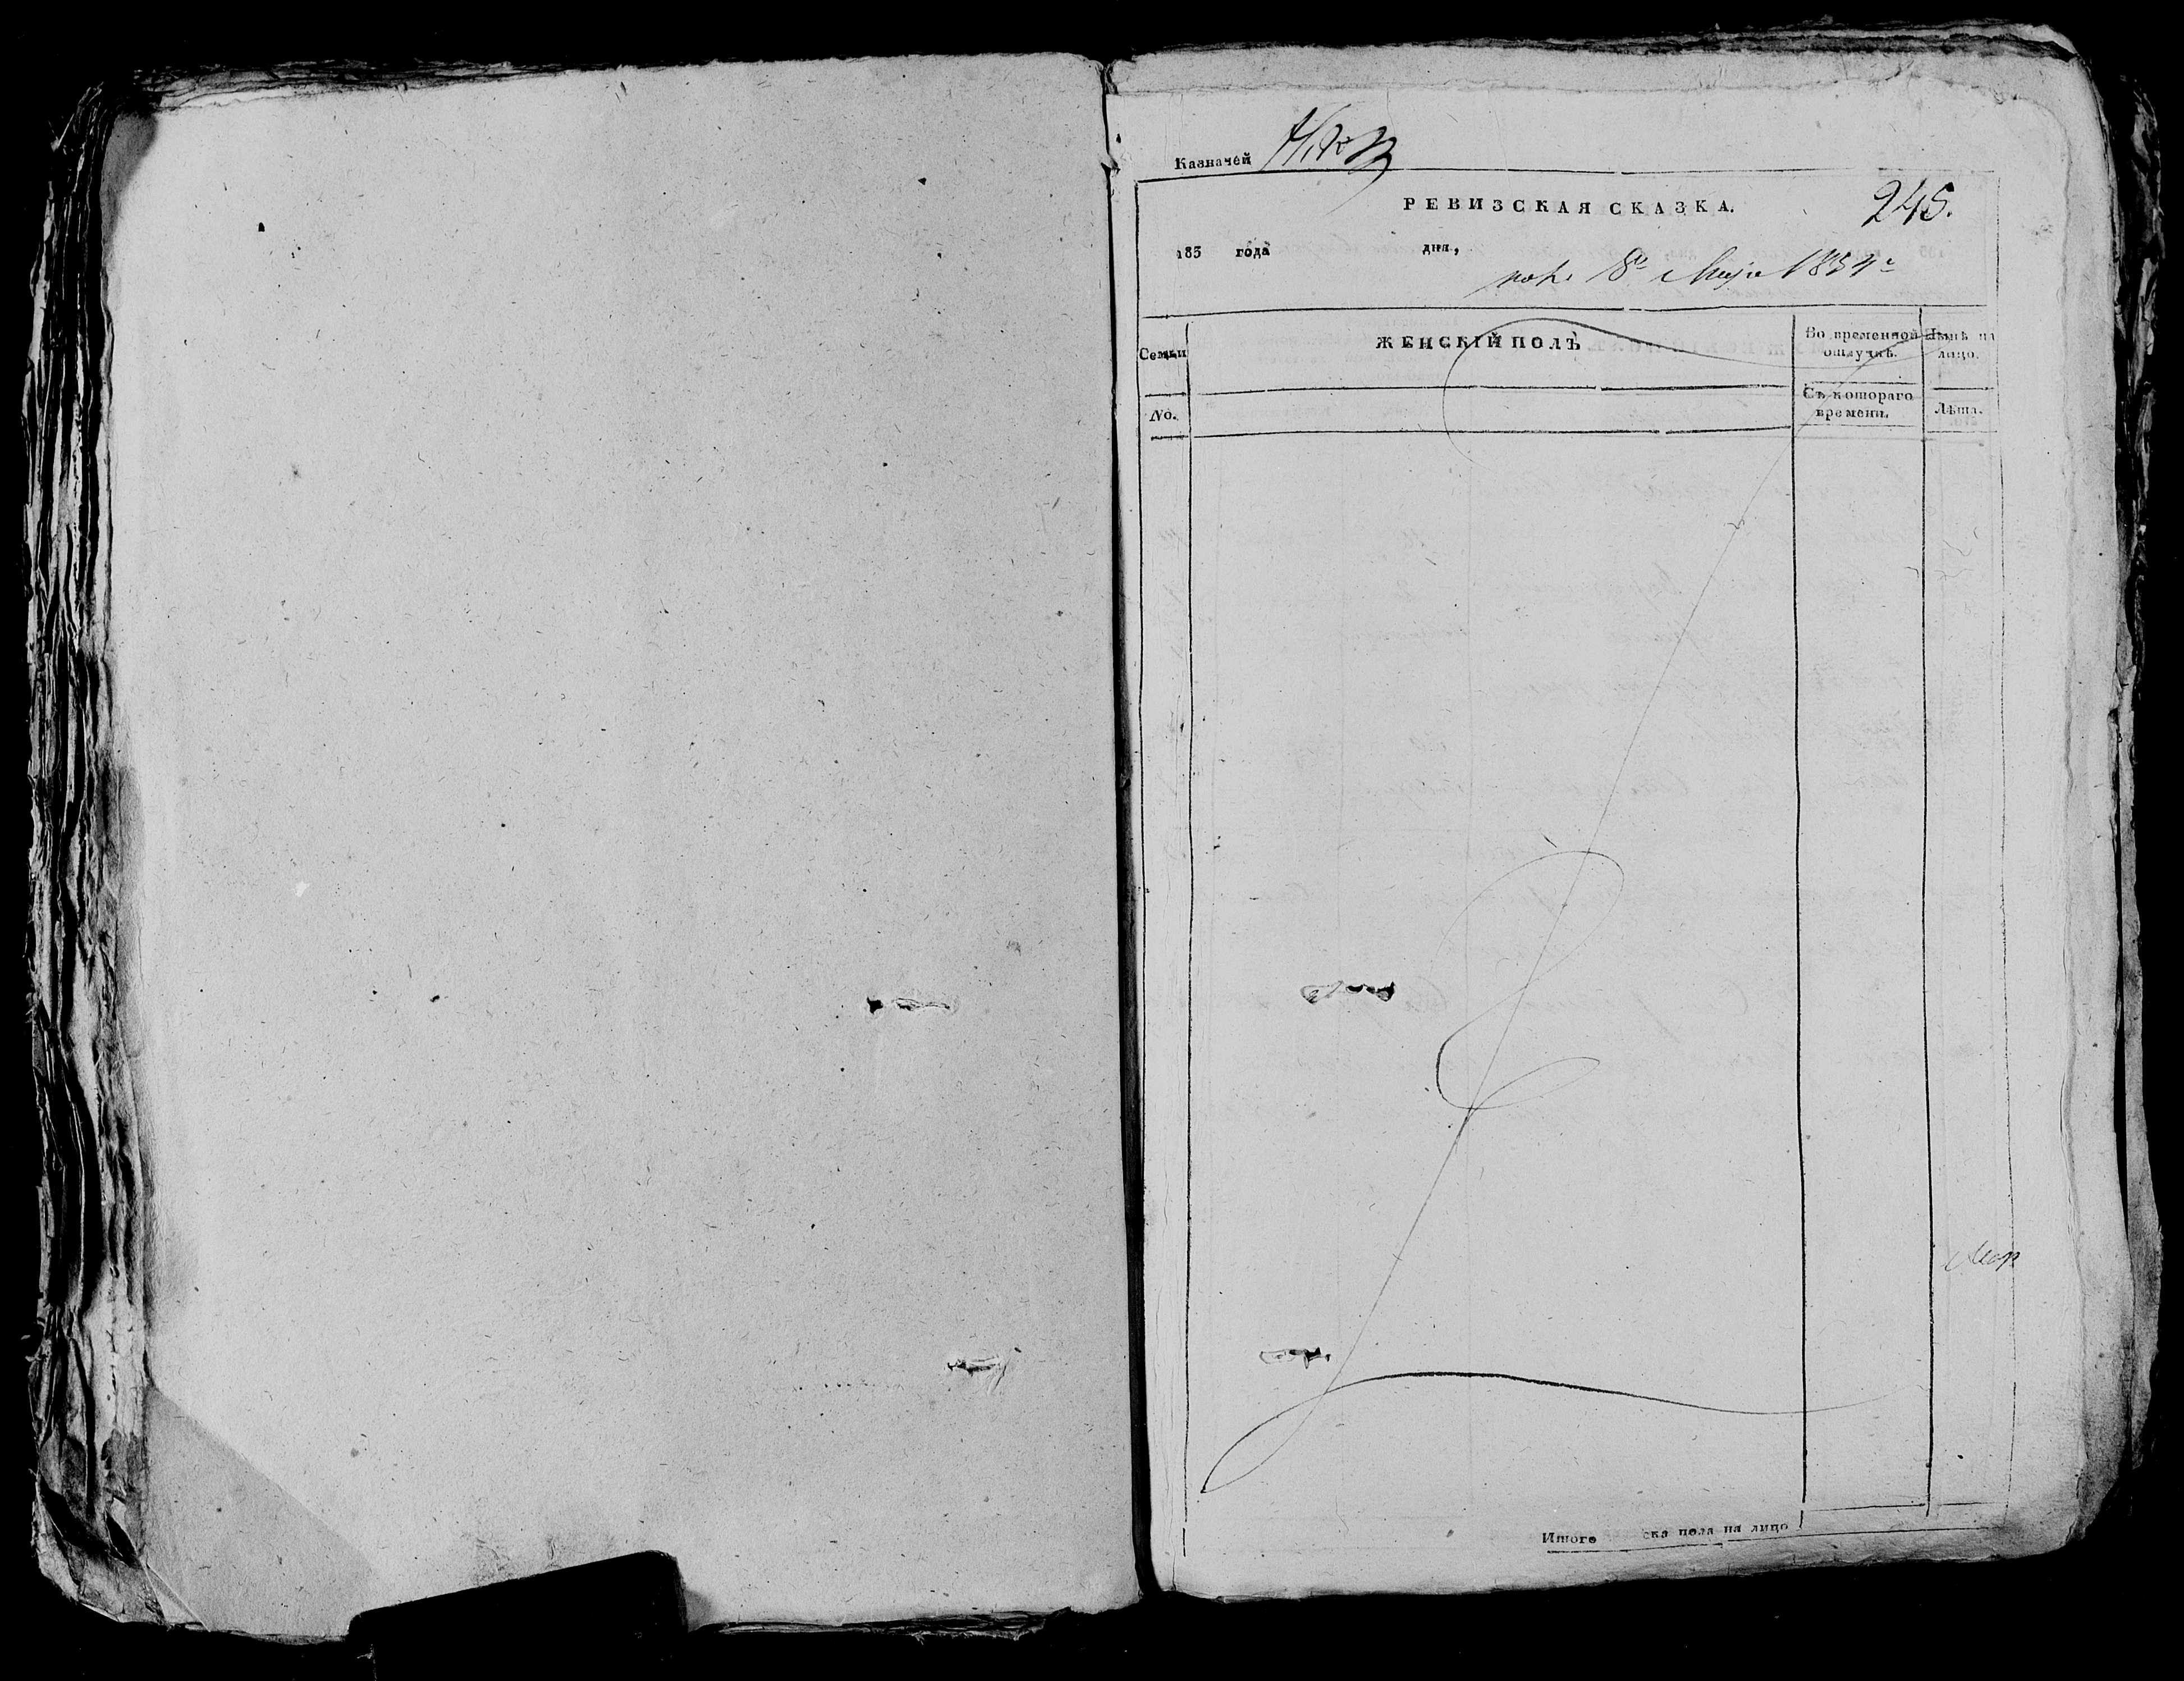 Казначей
РЕВИЗСКАЯ СКАЗКА. 245.
183 года дня,
8го Маія 1834го
Семьи ЖЕНСКІЙ ПОЛЪ Во временной отлучкѣ. Нынѣ на лицо.
No. Съ котораго времени. Лѣта.
Итого ска пола на лицо